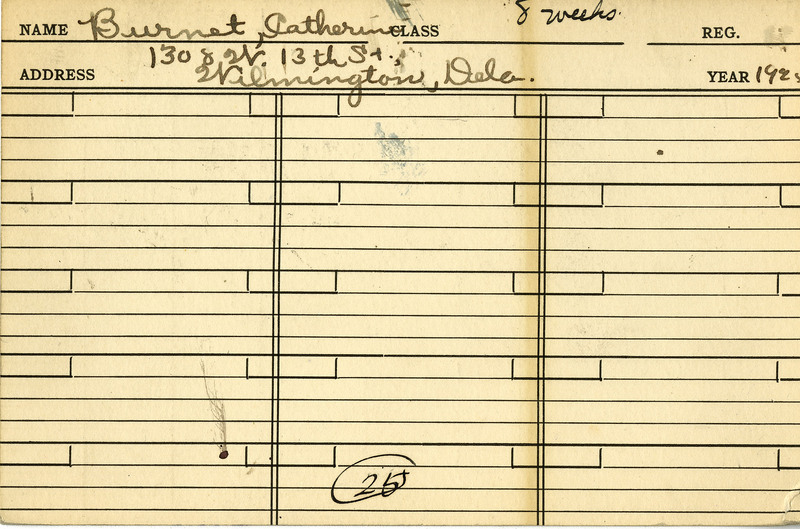 8 weeks
NAME Burnet, Catherine CLASS REG.
1308 W. 13th St.,
ADDRESS Wilmington, Dela. YEAR 192
25